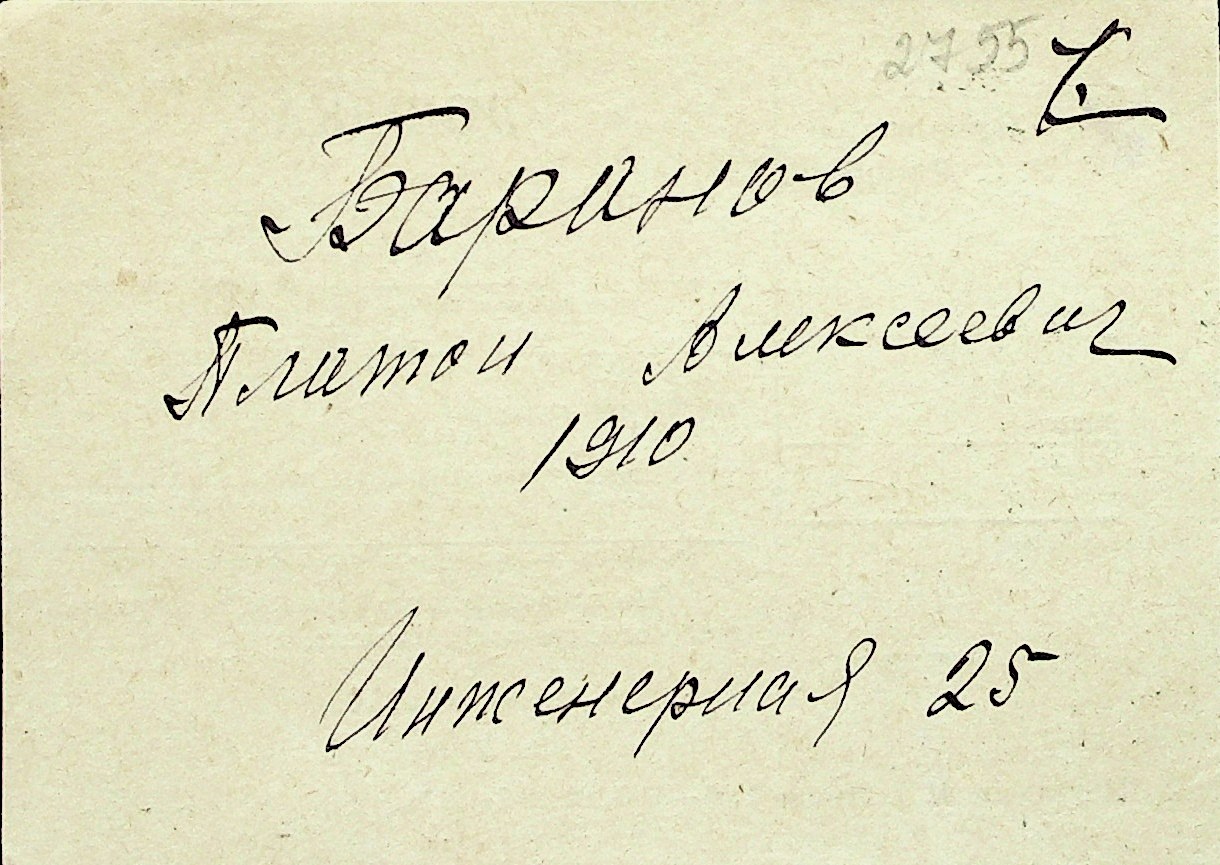 2755
Баринов
Платон Алексеевич
1910
Инженерная 25